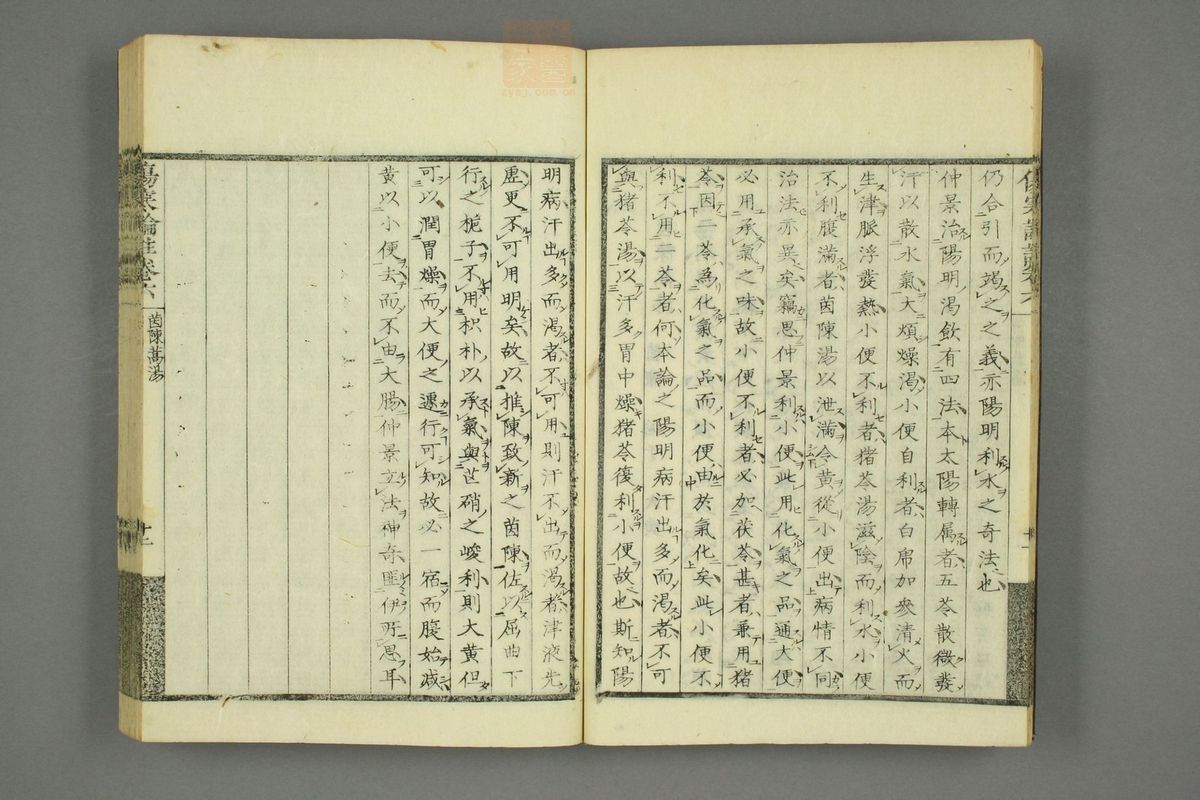 仍合引而竭之之義亦陽明利水之奇法也
仲景治陽明渴飲有四法本太陽轉属者五苓散微發
汗以散水氣大煩燥渴小便自利者白虎加參清火而
生津脈浮發熱小便不利者猪苓湯滋陰而利水小便
不利腹滿者茵陳湯以泄滿令黃從小便出病情不同
治法亦異矣竊思仲景利小便此用化氣之品通大便
必用承氣之味故小便不利者必加茯苓甚者兼用猪
苓因二苓為化氣之品而小便由於氣化矣此小便不
利不用二苓者何本論之陽明病汗出多而渴者不可
與猪苓湯以汗多胃中燥猪苓復利小便故也斯知陽
明病汗出多而渴者不可用則汗不出而渴者津液先
虛更不可用明矣故以推陳致新之茵陳佐以屈曲下
行之梔子不用枳朴以承氣與芒硝之峻利則大黃但
可以潤胃燥而大便之遽行可知故必一宿而腹始減
黃以小便去而不由大腸仲景立法神奇匪伊所思耳
傷寒論註卷六
茵陳蒿湯
十二
zysj.com.cn